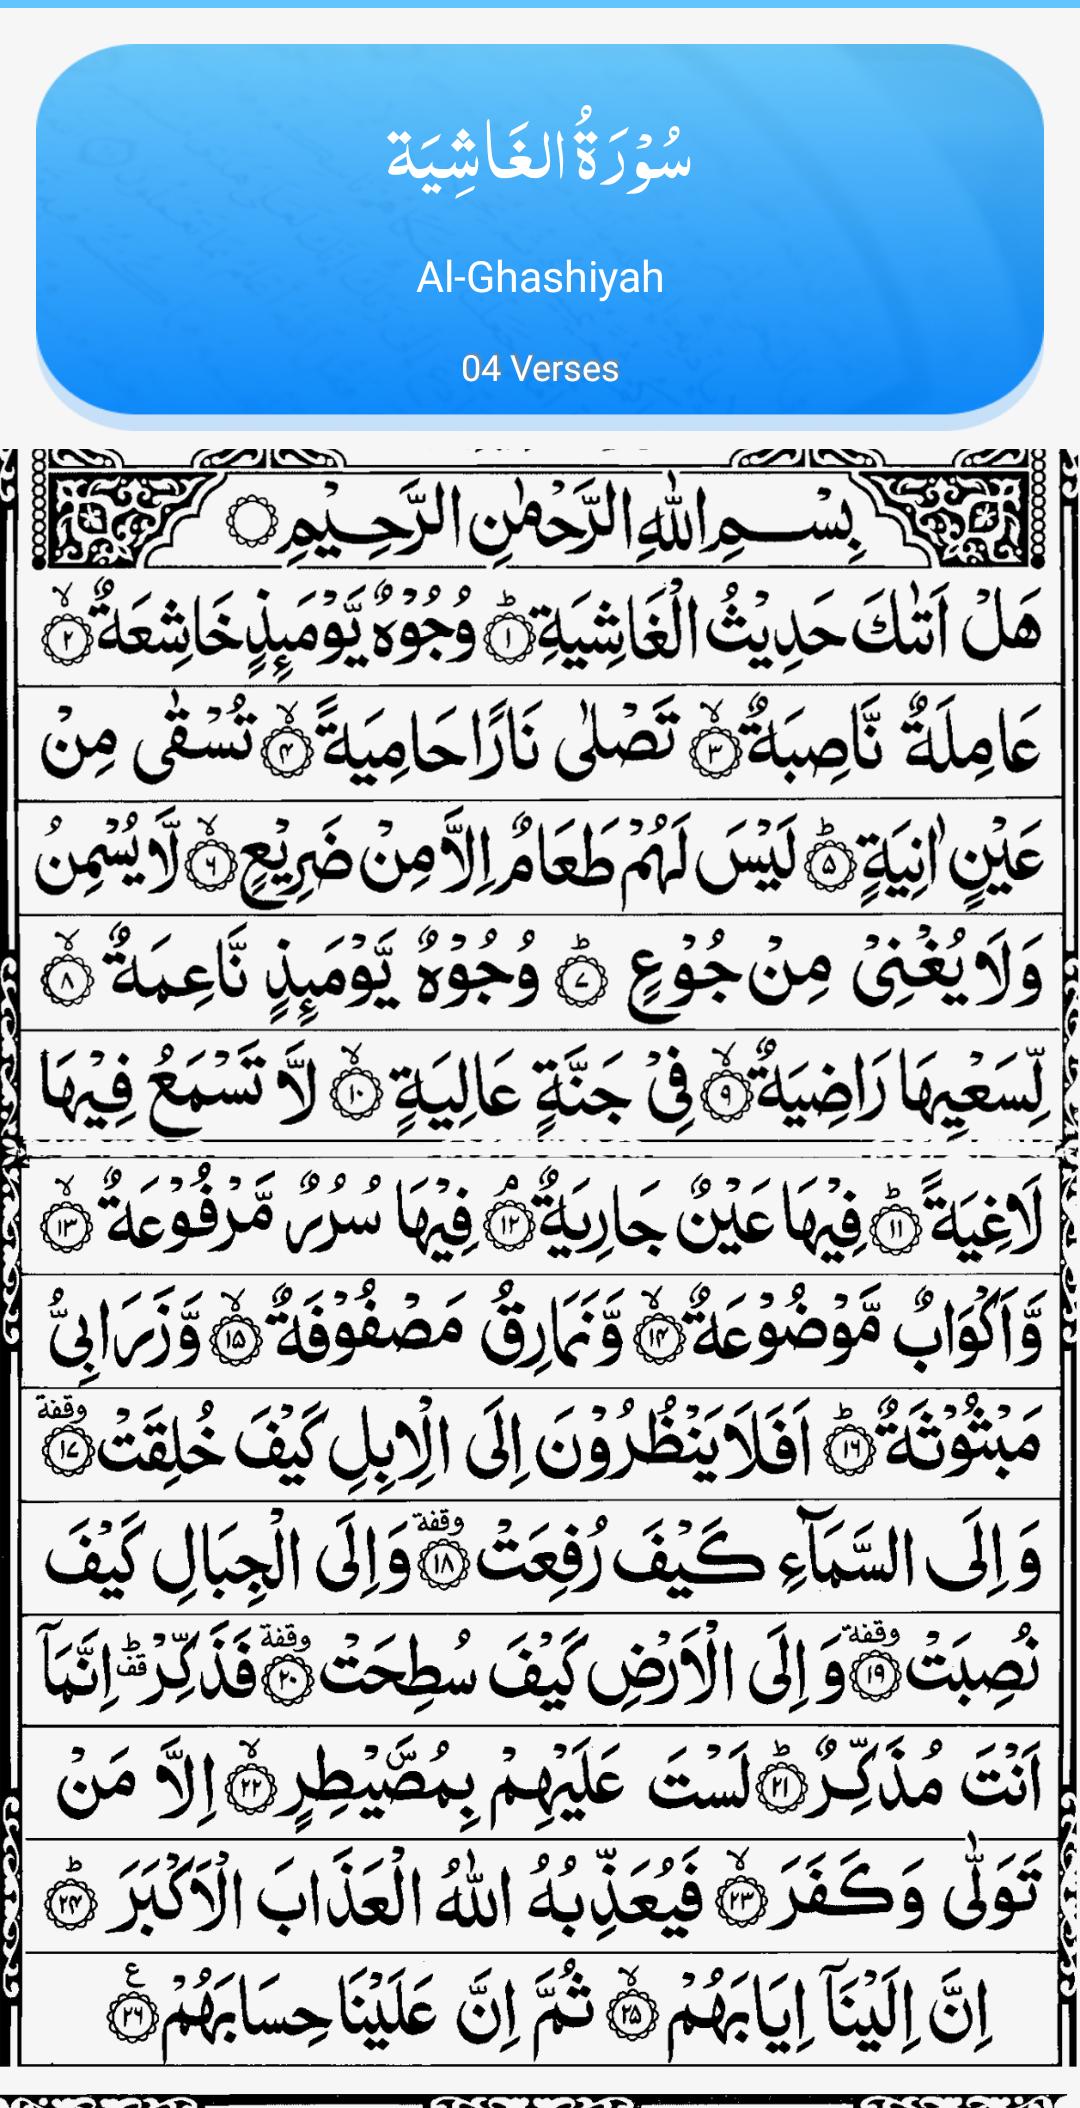 سُوْرَةُ الغَاشِيَة
Al-Ghashiyah
04 Verses
بِسْمِ اللّٰهِ الرَّحْمٰنِ الرَّحِيْمِ
هَلْ اَتٰىكَ حَدِيْثُ الْغَاشِيَةِ ؕ‏﴿۱﴾ وُجُوْهٌ يَّوْمَىِٕذٍ خَاشِعَةٌ ۙ‏﴿۲﴾
عَامِلَةٌ نَّاصِبَةٌ ۙ‏﴿۳﴾ تَصْلٰى نَارًا حَامِيَةً ۙ‏﴿۴﴾ تُسْقٰى مِنْ
عَيْنٍ اٰنِيَةٍ ؕ‏﴿۵﴾ لَيْسَ لَهُمْ طَعَامٌ اِلَّا مِنْ ضَرِيْعٍ ۙ‏﴿۶﴾ لَّا يُسْمِنُ
وَلَا يُغْنِىْ مِنْ جُوْعٍ ؕ‏﴿۷﴾ وُجُوْهٌ يَّوْمَىِٕذٍ نَّاعِمَةٌ ۙ‏﴿۸﴾
لِّسَعْيِهَا رَاضِيَةٌ ۙ‏﴿۹﴾ فِىْ جَنَّةٍ عَالِيَةٍ ۙ‏﴿۱۰﴾ لَّا تَسْمَعُ فِيْهَا
لَاغِيَةً ؕ‏﴿۱۱﴾ فِيْهَا عَيْنٌ جَارِيَةٌ ۘ‏﴿۱۲﴾ فِيْهَا سُرُرٌ مَّرْفُوْعَةٌ ۙ‏﴿۱۳﴾
وَّاَكْوَابٌ مَّوْضُوْعَةٌ ۙ‏﴿۱۴﴾ وَّنَمَارِقُ مَصْفُوْفَةٌ ۙ‏﴿۱۵﴾ وَّزَرَابِىُّ
مَبْثُوْثَةٌ ؕ‏﴿۱۶﴾ اَفَلَا يَنْظُرُوْنَ اِلَى الْاِبِلِ كَيْفَ خُلِقَتْ وقفة ﴿۱۷﴾
وَاِلَى السَّمَآءِ كَيْفَ رُفِعَتْ وقفة ﴿۱۸﴾ وَاِلَى الْجِبَالِ كَيْفَ
نُصِبَتْ وقفة ﴿۱۹﴾ وَاِلَى الْاَرْضِ كَيْفَ سُطِحَتْ وقفة ﴿۲۰﴾ فَذَكِّرْ ؕ قف اِنَّمَاۤ
اَنْتَ مُذَكِّرٌ ؕ‏﴿۲۱﴾ لَسْتَ عَلَيْهِمْ بِمُصَۜيْطِرٍ ۙ‏﴿۲۲﴾ اِلَّا مَنْ
تَوَلّٰى وَكَفَرَ ۙ‏﴿۲۳﴾ فَيُعَذِّبُهُ اللّٰهُ الْعَذَابَ الْاَكْبَرَ ؕ‏﴿۲۴﴾
اِنَّ اِلَيْنَاۤ اِيَابَهُمْ ۙ‏﴿۲۵﴾ ثُمَّ اِنَّ عَلَيْنَا حِسَابَهُمْ ع ﴿۲۶﴾